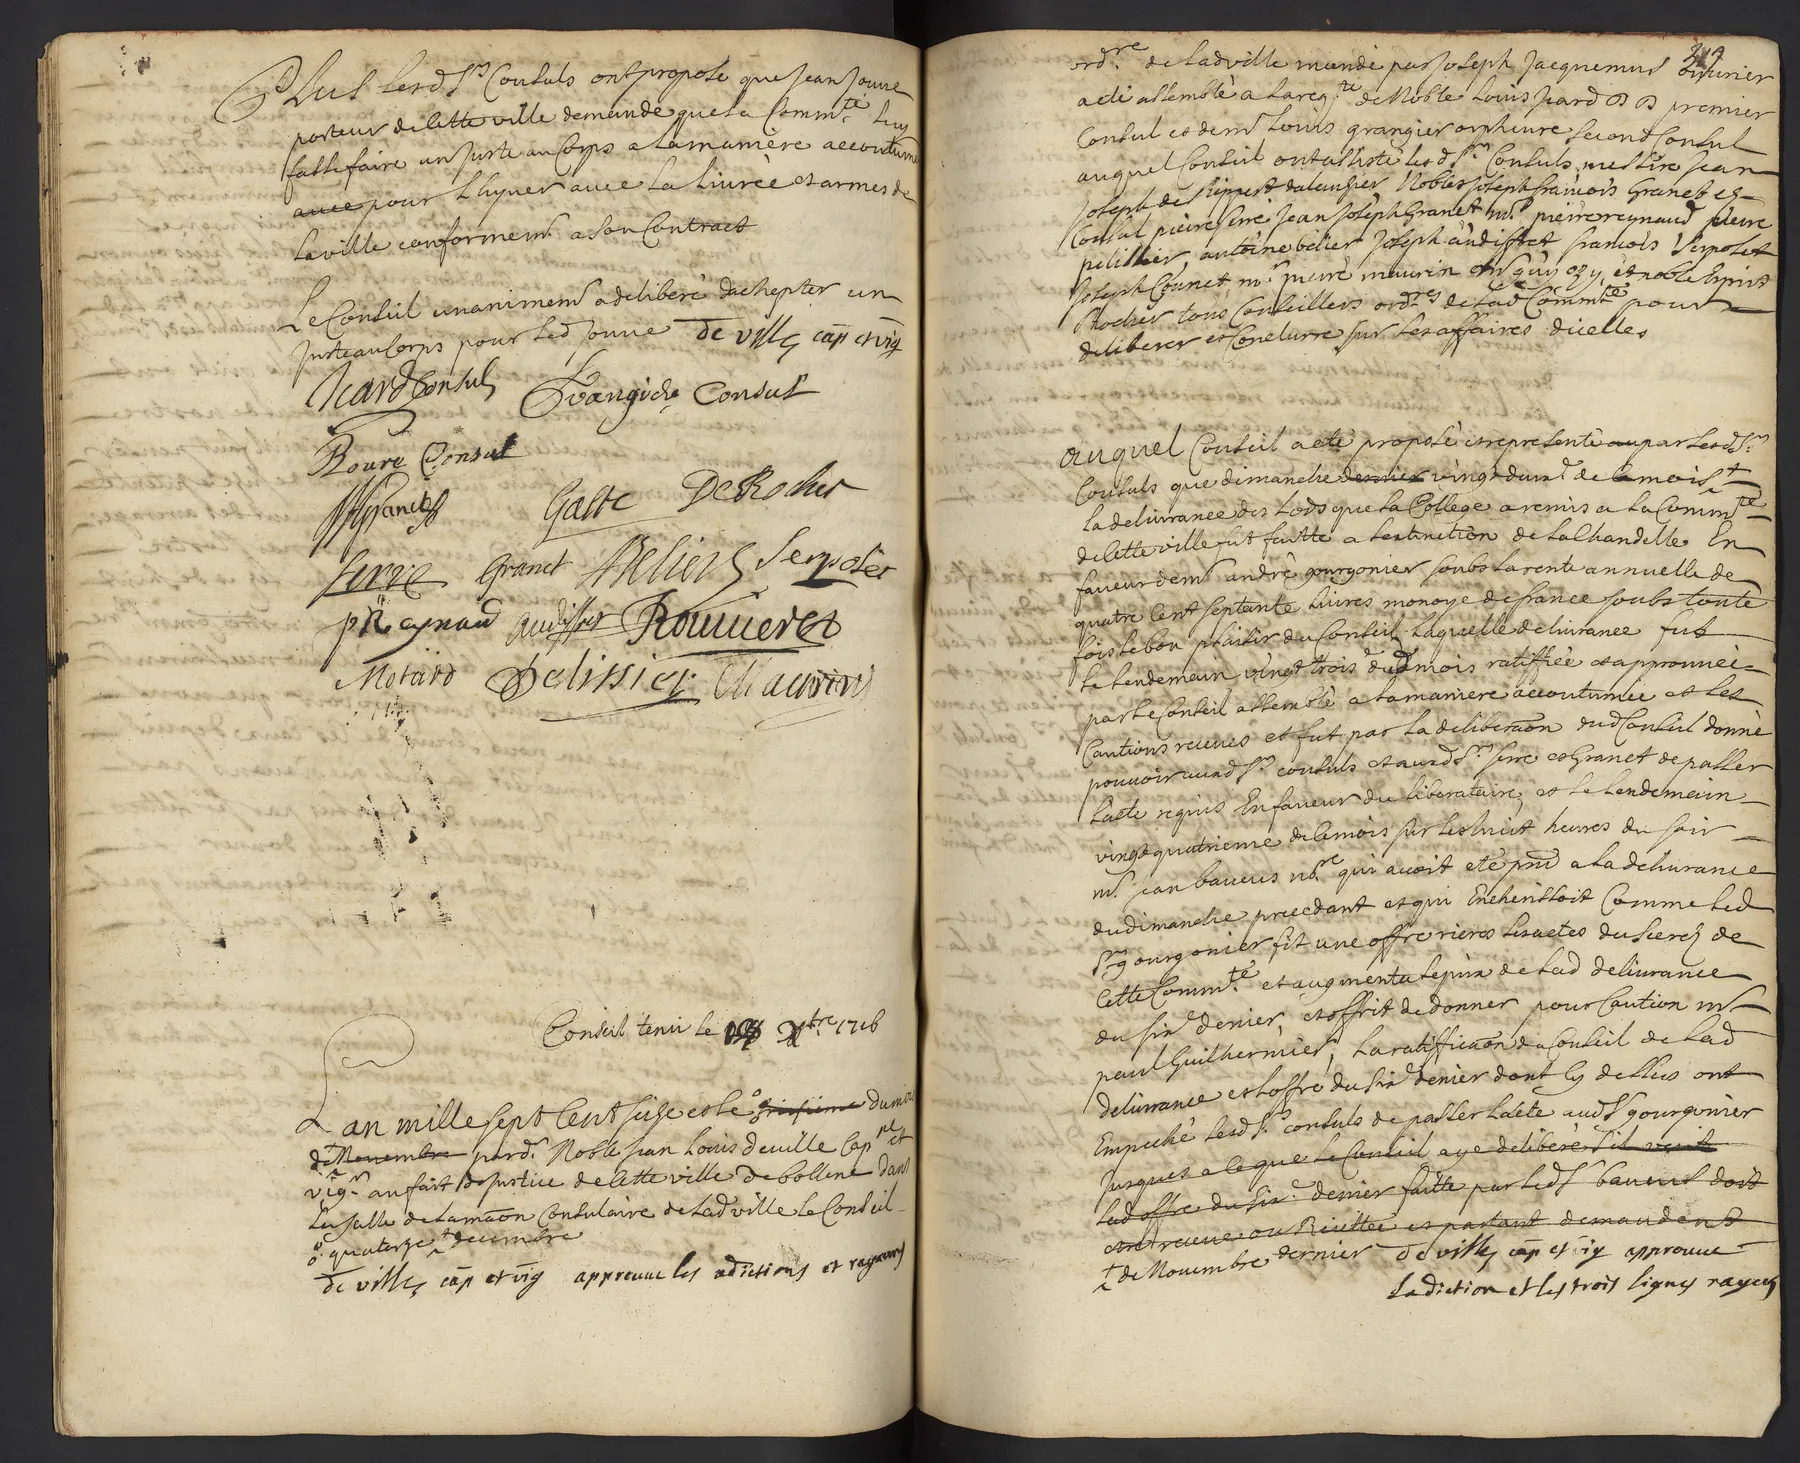 Plus lesd Srs Consuls ont proposé que Jean Jouve
porteur de cette ville demande que la Commte luy
fasse faire un justeaucorps a la manière accoutumé
avec pour lhyver avec la livrée et armes de
la ville conformemt a son Contract
Le Conseil unanimemt a deliberé dachepter un
justeaucorps pour led Jouve De ville cap et vig
Icard Consul Consul
Roure Consul
Granet Galte DeRocher
Serre Granet Pelier Serpolet
p Reynaud audiffret Rouvieret
Motard Pelissier Maurin
Conseil tenu le Xbre 1716
Lan mille sept cent seise et le troisieme du mois
de Novembre pard. Noble Jean Louis deville Cap et
vigr au fait de justice de cette ville de bollene Dans
la salle de la maon Consulaire de lad ville le Conseil
quatorze decembre
De ville cap et vig approuve les adictions et rayeures
ordre de lad ville mandé par Joseph Jacquemus
a eté assemblé a la reqte de Noble Louis Jcard premier
Consul et de mr Louis grangier orpheuvre second Consul
auquel Conseil ont assisté lesd Srs Consuls, messire Jean
Joseph de Rippert dalauzier Nobles Joseph françois Granet ex
Consul pierre serre Jean Joseph Granet mr pierre reynaud pierre
pelissier antoine belier Joseph audiffret françois Serpolet
Joseph Counet mr pierre maurin et noble Esprit
Rocher tous Conseillers ordres de lad Commte pour
deliberer et Conclurre sur les affaires dicelles
auquel Conseil a eté proposé et representé au par lesd Srs
Consuls que dimanche dernier vingt deuxe de ce mois
la delivrance des Lods que la College a remis a la Commte
de cette ville fut faitte a lextinction de la Chandelle En
faveur de mr andré gourgonier soubs la rente annuelle de
quatre cent septante livres monoye de france soubs toute
fois le bon plaisir du Conseil laquelle delivrance fut
le lendemain vingt trois dud mois ratiffiée et approuvée
par le Conseil assemblé a la maniere accoutumée et les
Cautions receues et fut par la deliberaon dud Conseil donné
pouvoir auxd Srs consuls et auxd Srs serre et Granet de passer
lacte requis En faveur du liberataire, et le lendemain
vingt quatrieme de ce mois sur les huict heures du soir
mr jean baveus nore qui avoit eté pnt a la delivrance
du dimanche precedant et qui Encherissoit Comme led
Sr gourgonier fit une offre rieres les actes du Secre de
Cette Commte et augmenta le prix de lad delivrance
du sixe denier, et offrit de donner pour Caution mr
paul Guilhermier, la ratifficaon du Conseil de lad
delivrance et loffre du sixe denier dont cy dessus ont
Empeché lesd Srs consuls de passer lacte aud Sr gourgonier
jusques a ce que le Conseil aye deliberé sil veut
lad offre du sixe denier faitte par led Sr baveus doit
etre receue ou Rejettée et partant demandent
de Novembre dernier De ville cap et vig approuve
ladiction et les trois lignes rayees